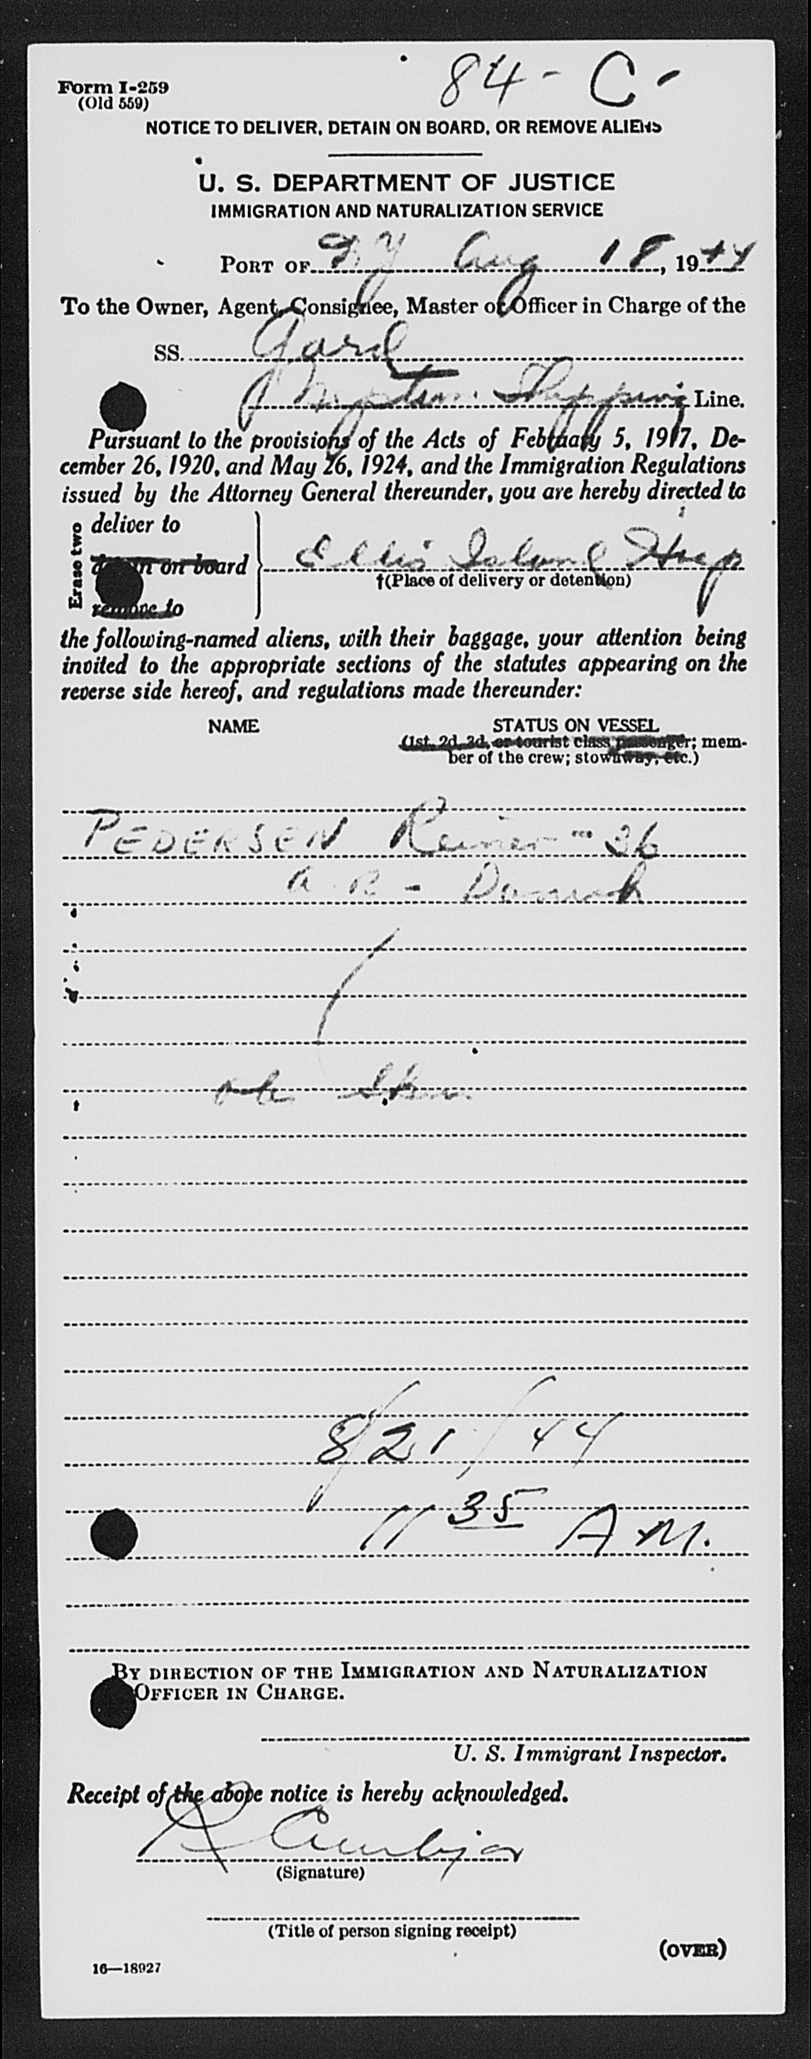 84 - C -
Form I-259
(Old 559)
NOTICE TO DELIVER, DETAIN ON BOARD, OR REMOVE ALIENS
U. S. DEPARTMENT OF JUSTICE
IMMIGRATION AND NATURALIZATION SERVICE
PORT OF N Y Aug 18, 1944
To the Owner, Agent, Consignee, Master or Officer in Charge of the
SS. Gard
Shipping Line.
Pursuant to the provisions of the Acts of February 5, 1917, De-
cember 26, 1920, and May 26, 1924, and the Immigration Regulations
issued by the Attorney General thereunder, you are hereby directed to
Erase two
deliver to
detain on board
remove to
Ellis Island Hosp
†(Place of delivery or detention)
the following-named aliens, with their baggage, your attention being
invited to the appropriate sections of the statutes appearing on the
reverse side hereof, and regulations made thereunder:
NAME STATUS ON VESSEL
(1st, 2d, 3d, or tourist class passenger; mem-
ber of the crew; stowaway, etc.)
PEDERSEN Reiner - 36
Danish
8/21/44
11 35 A.M.
BY DIRECTION OF THE IMMIGRATION AND NATURALIZATION
OFFICER IN CHARGE.
U. S. Immigrant Inspector.
Receipt of the above notice is hereby acknowledged.
(Signature)
(Title of person signing receipt)
(OVER)
16—18927